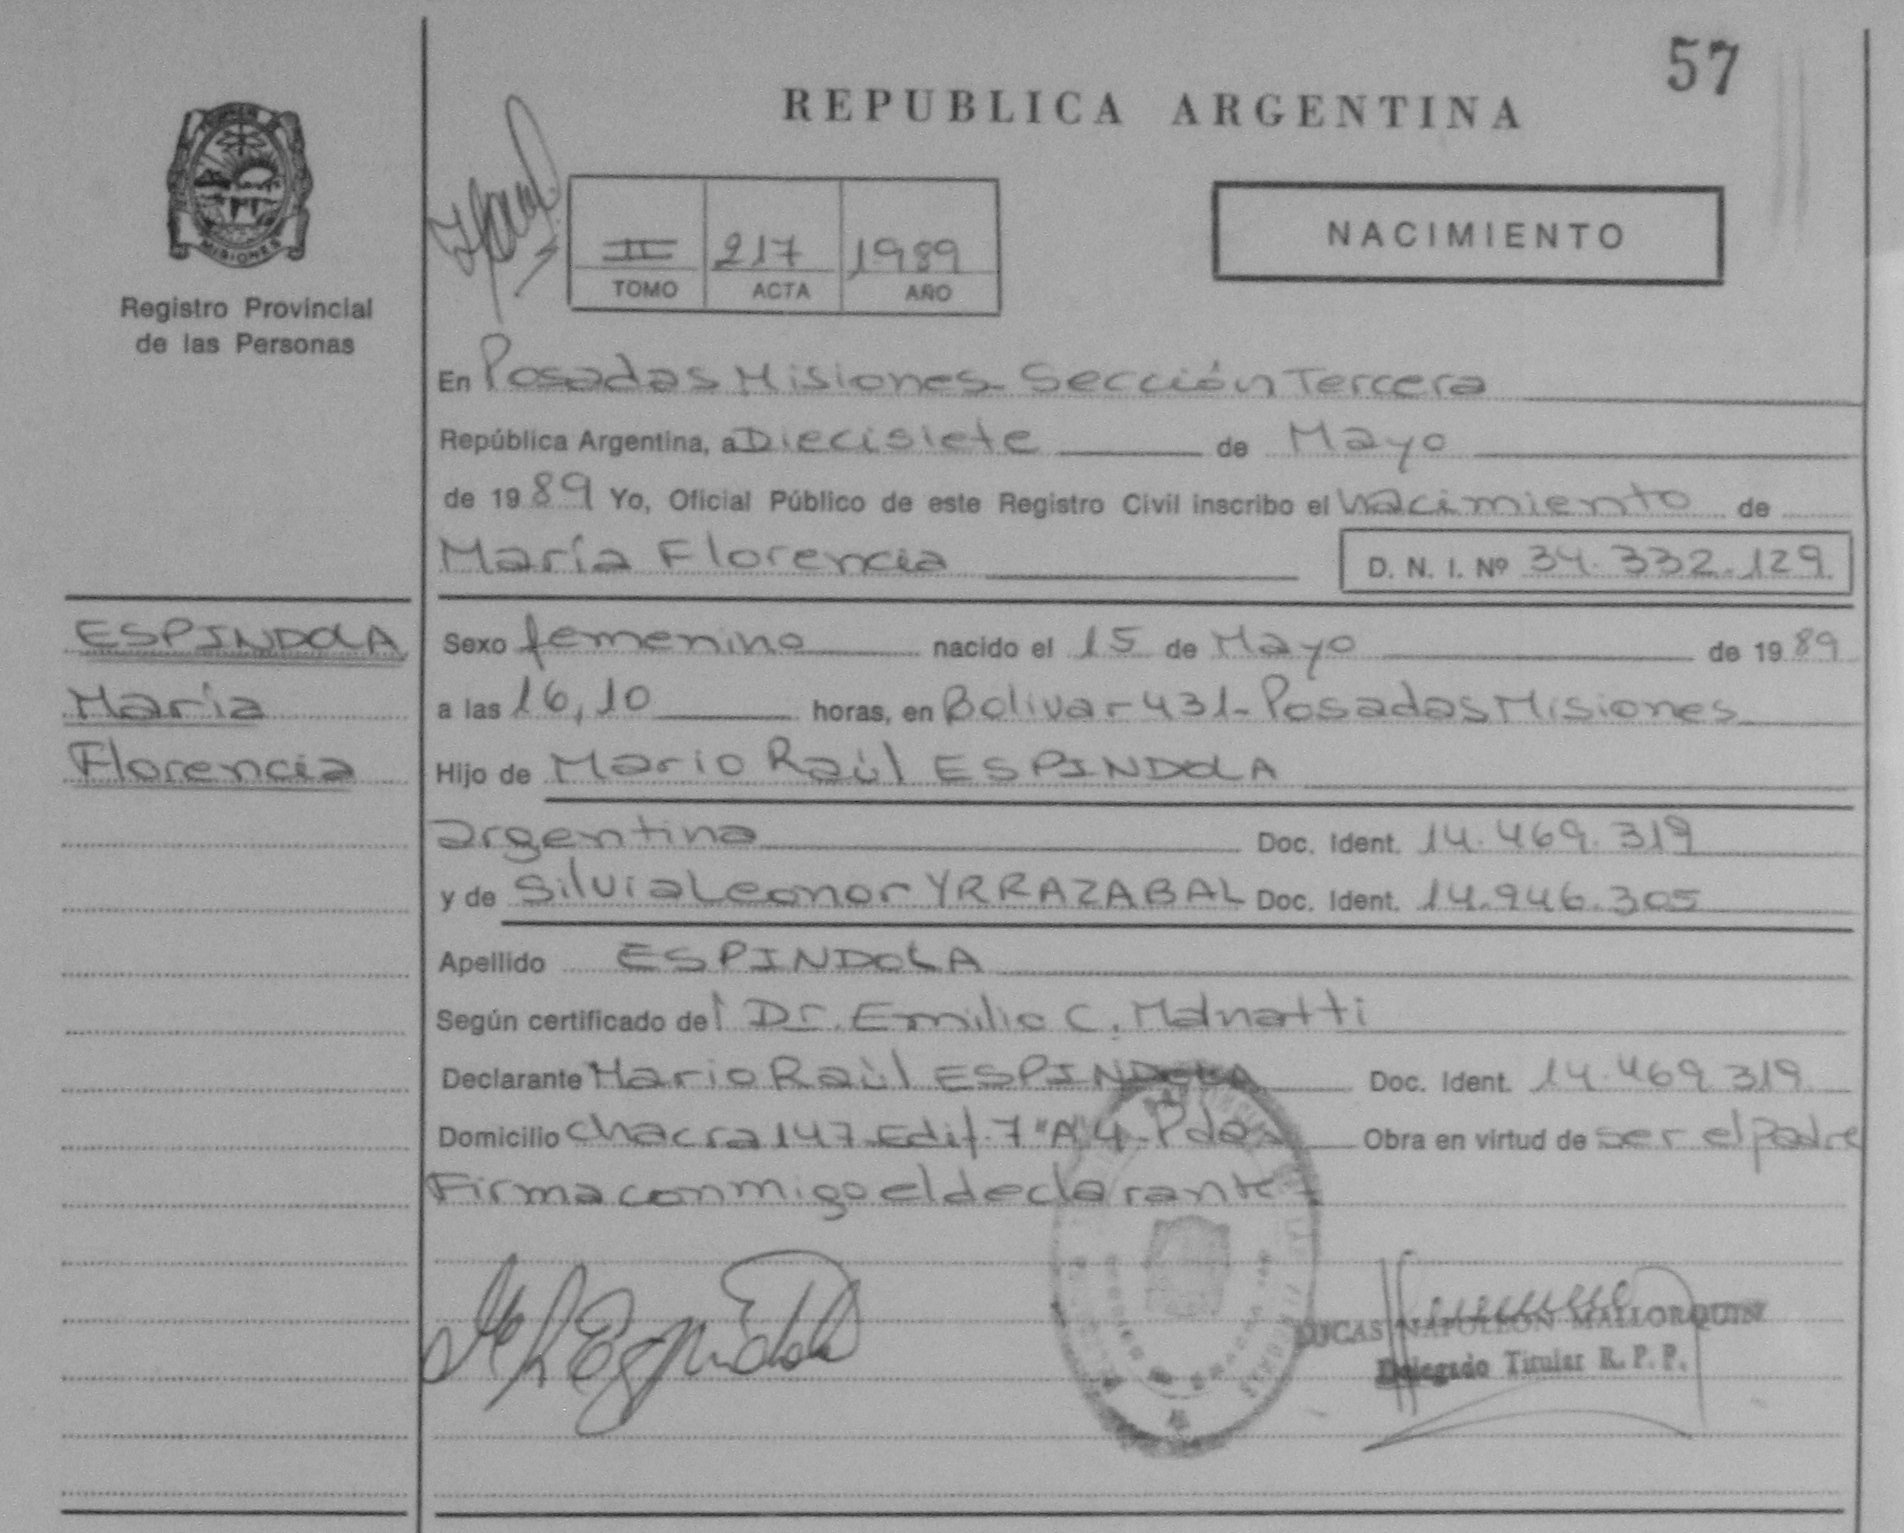 57
REPUBLICA ARGENTINA
MISIONES
Registro Provincial
de las Personas
II 217 1989
TOMO ACTA AÑO
NACIMIENTO
En Posadas Misiones- Sección Tercera
República Argentina, a Diecisiete de Mayo
de 1989 Yo, Oficial Público de este Registro Civil inscribo el nacimiento de
María Florencia D. N. I. Nº 34.332.129
ESPINDOLA
María
Florencia
Sexo femenino nacido el 15 de Mayo de 1989
a las 16,10 horas, en Bolivar-431-Posadas Misiones
Hijo de Mario Raúl ESPINDOLA
argentina Doc. Ident. 14.469.319
y de Silvia Leonor YRRAZABAL Doc. Ident. 14.946.305
Apellido ESPINDOLA
Según certificado del Dr. Emilio C.
Declarante Mario Raúl ESPINDOLA Doc. Ident. 14.469.319
Domicilio chacra 147-Edif.7 "A" 4-Pdas Obra en virtud de ser el padre
Firma conmigo el declarante-
LUCAS NAPOLEON MALLORQUIN
Delegado Titular R. P. P.